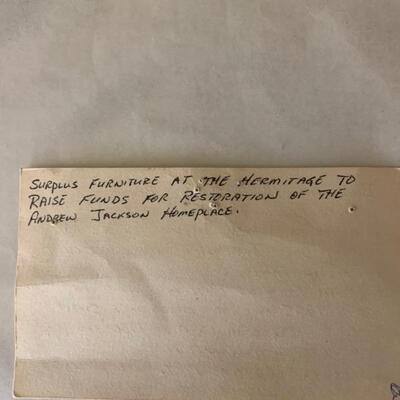 SURPLUS FURNITURE AT THE HERMITAGE TO
RAISE FUNDS FOR RESTORATION OF THE
ANDREW JACKSON HOMEPLACE.